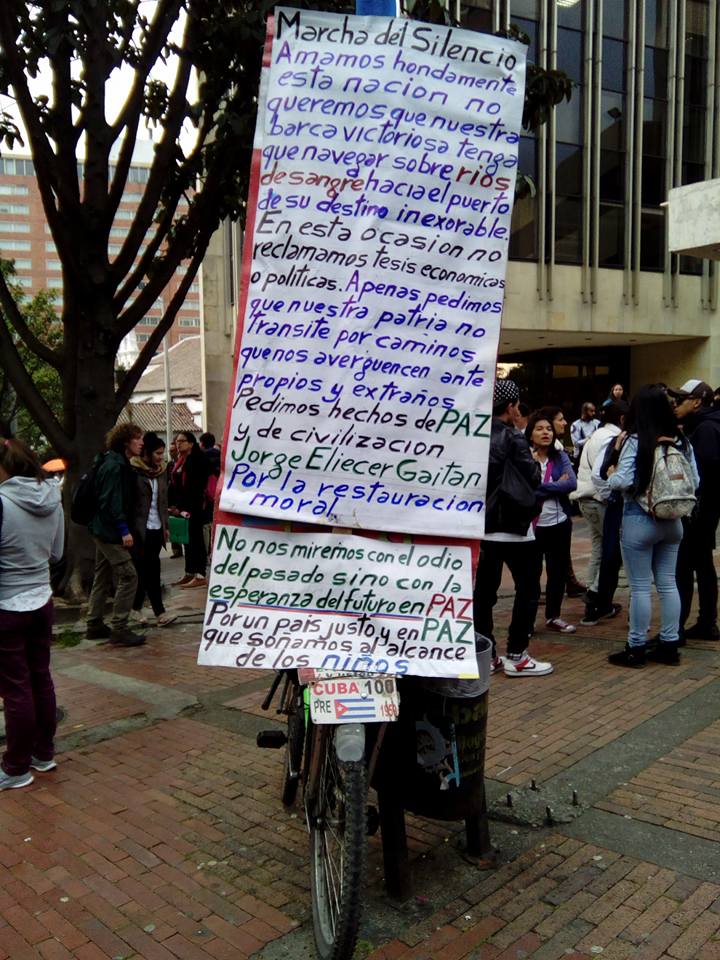 Marcha del Silencio
Amamos hondamente
esta nacion no
queremos que nuestra
barca victoriosa tenga
que navegar sobre rios
de sangre hacia el puerto
de su destino inexorable.
En esta ocasion no
reclamamos tesis economicas
o politicas. Apenas pedimos
que nuestra patria no
transite por caminos
que nos averguencen ante
propios y extraños
Pedimos hechos de PAZ
y de civilizacion
Jorge Eliecer Gaitan
Por la restauracion
moral
No nos miremos con el odio
del pasado sino con la
esperanza del futuro en PAZ
Por un pais justo, y en PAZ
que soñamos al alcance
de los niños
CUBA 100
PRE 1959